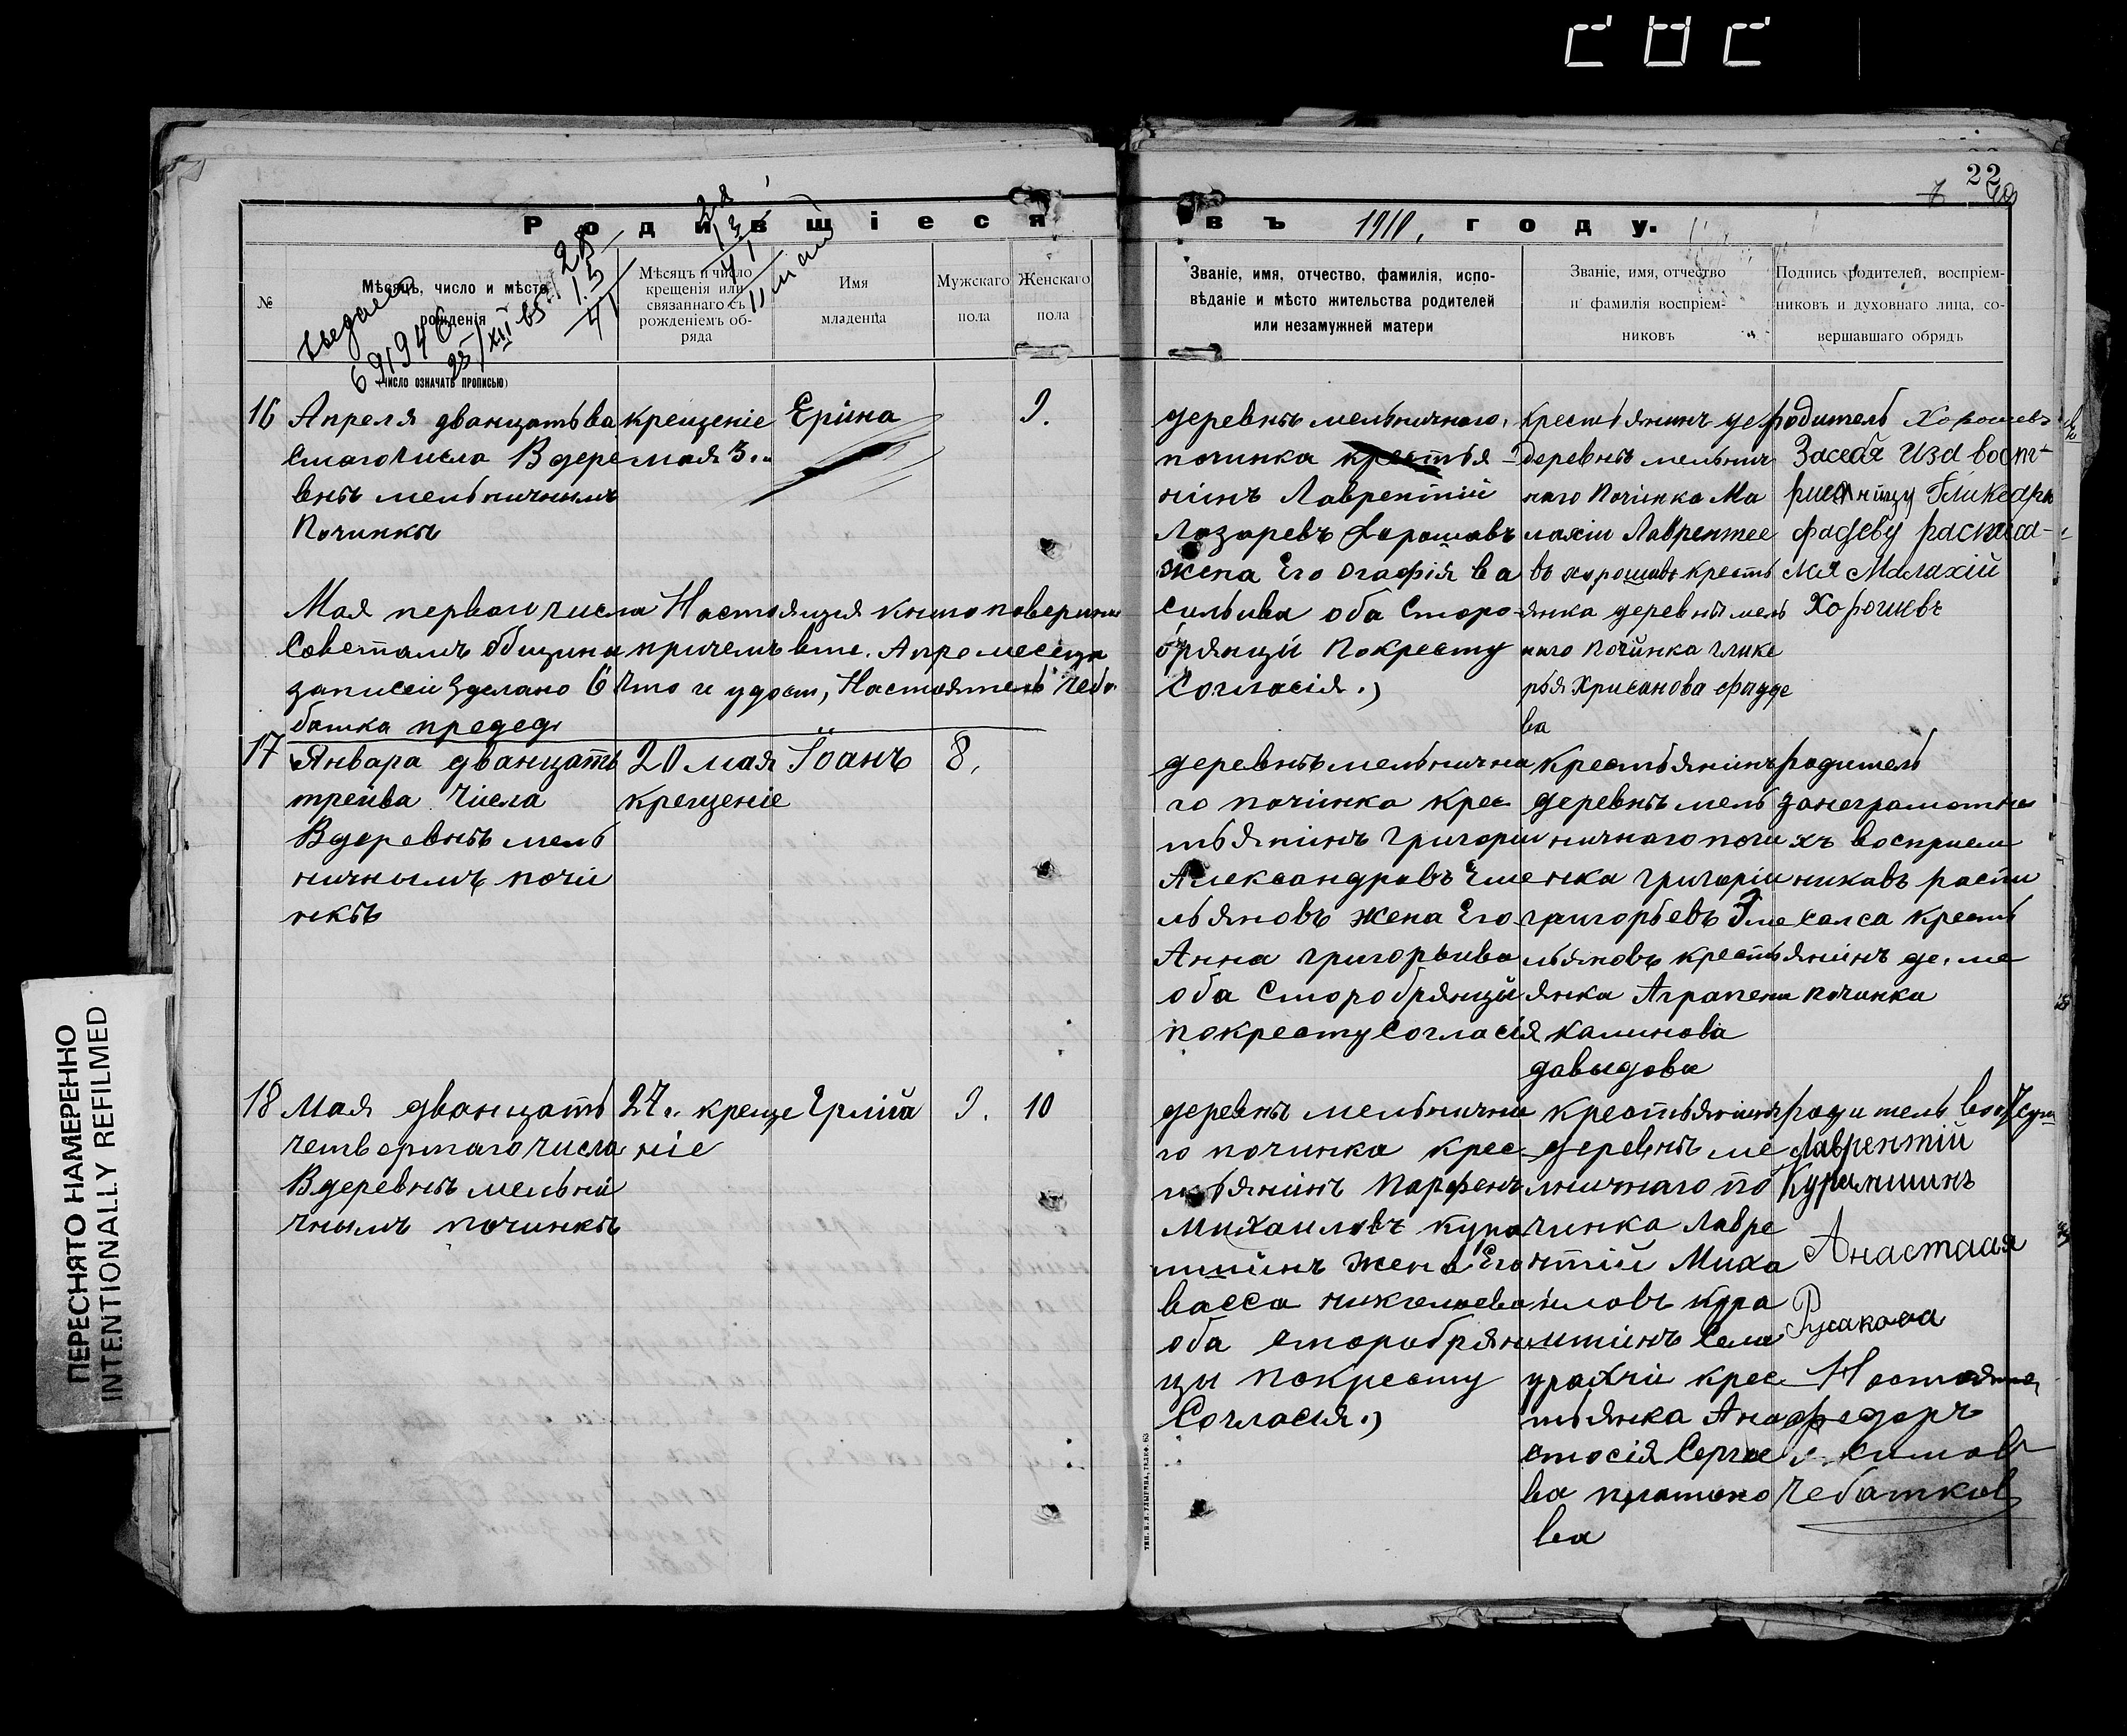 22
Родившіеся
въ 1910, году.
№
Мѣсяцъ, число и мѣсто
рожденія
(число означать прописью)
Мѣсяцъ и число
крещенія или
связаннаго съ
рожденіемъ об-
ряда
Имя
младенца
Мужскаго
пола
Женскаго
пола
Званіе, имя, отчество, фамилія, испо-
вѣданіе и мѣсто жительства родителей
или незамужней матери
Званіе, имя, отчество
и фамилія воспріем-
никовъ
Подпись родителей, воспріем-
никовъ и духовнаго лица, со-
вершавшаго обрядъ
16
Апреля дванцать ва
стаго числа В дере
внѣ мельничнымъ
Починкѣ
крещеніе
мая 3.
Ерина
9.
деревнѣ мельничнаго
починка крестья
нинъ Лаврентий
Лазаревъ Хорошавъ
жена Его Огафія ва
сильива оба Старо-
обрянци Покресту
Согласія.)
крестьянинъ де
деревнѣ мельнич
наго Починка Ма
лахіи Лаврентее
въ хорошавъ кресть
янка деревнѣ мель
наго Починка глике
рья Хрисанова фадде
ва
родитель Хорошевъ
Засебя Иза восп-
риемницу Гликерю
Фадеву расписа-
лся Малахій
Хорошевъ
Мая первого числа Настоящия книга поверина
Советамъ общины причемъ вте. Апре месеца
записей зделано 6 Что и удост, Настоятель Чеба
башка председ
17
Января дванцать
трейва числа
Вдеревнѣ мель
ничнымъ почи
нкѣ
20 мая
крещеніе
Іоанъ
8.
деревнѣ мельнична
го починка крес
тьянинъ Григори
Александравъ Еме
льяновъ жена Его
Анна григорьива
оба Старобрянци
покресту Согласія
крестьянинъ
деревнѣ мель
ничнаго почи
нка григори
григорьевъ Эме
льяновъ кресть
янка Аграпени
калинова
давыдова
родитель
занеграмотны
хъ восприем
никавъ распи
салса кресть
янинъ де. ме
починка
18
Мая дванцать
четвертаго числа
Вдеревнѣ мельни
чнымъ починкѣ
24 г. креще
ніе
9.
10
деревнѣ мельнична
го починка крес
тьянинъ Парфенъ
Михаиловъ кура
жена Его
васса николаева
оба старобрян
цы покресту
Согласія.)
крестьянинъ
деревнѣ ме
лничнаго по
чинка Лавре
нтій Миха
иловъ кура
Села
урахчи крес
тьянка Ана
стосія Сергее
ва
ва
родитель
Лаврентій
Анастасая
Русакова
Настояте
федоръ
Чебатковъ
ПЕРЕСНЯТО НАМЕРЕННО
INTENTIONALLY REFILMED